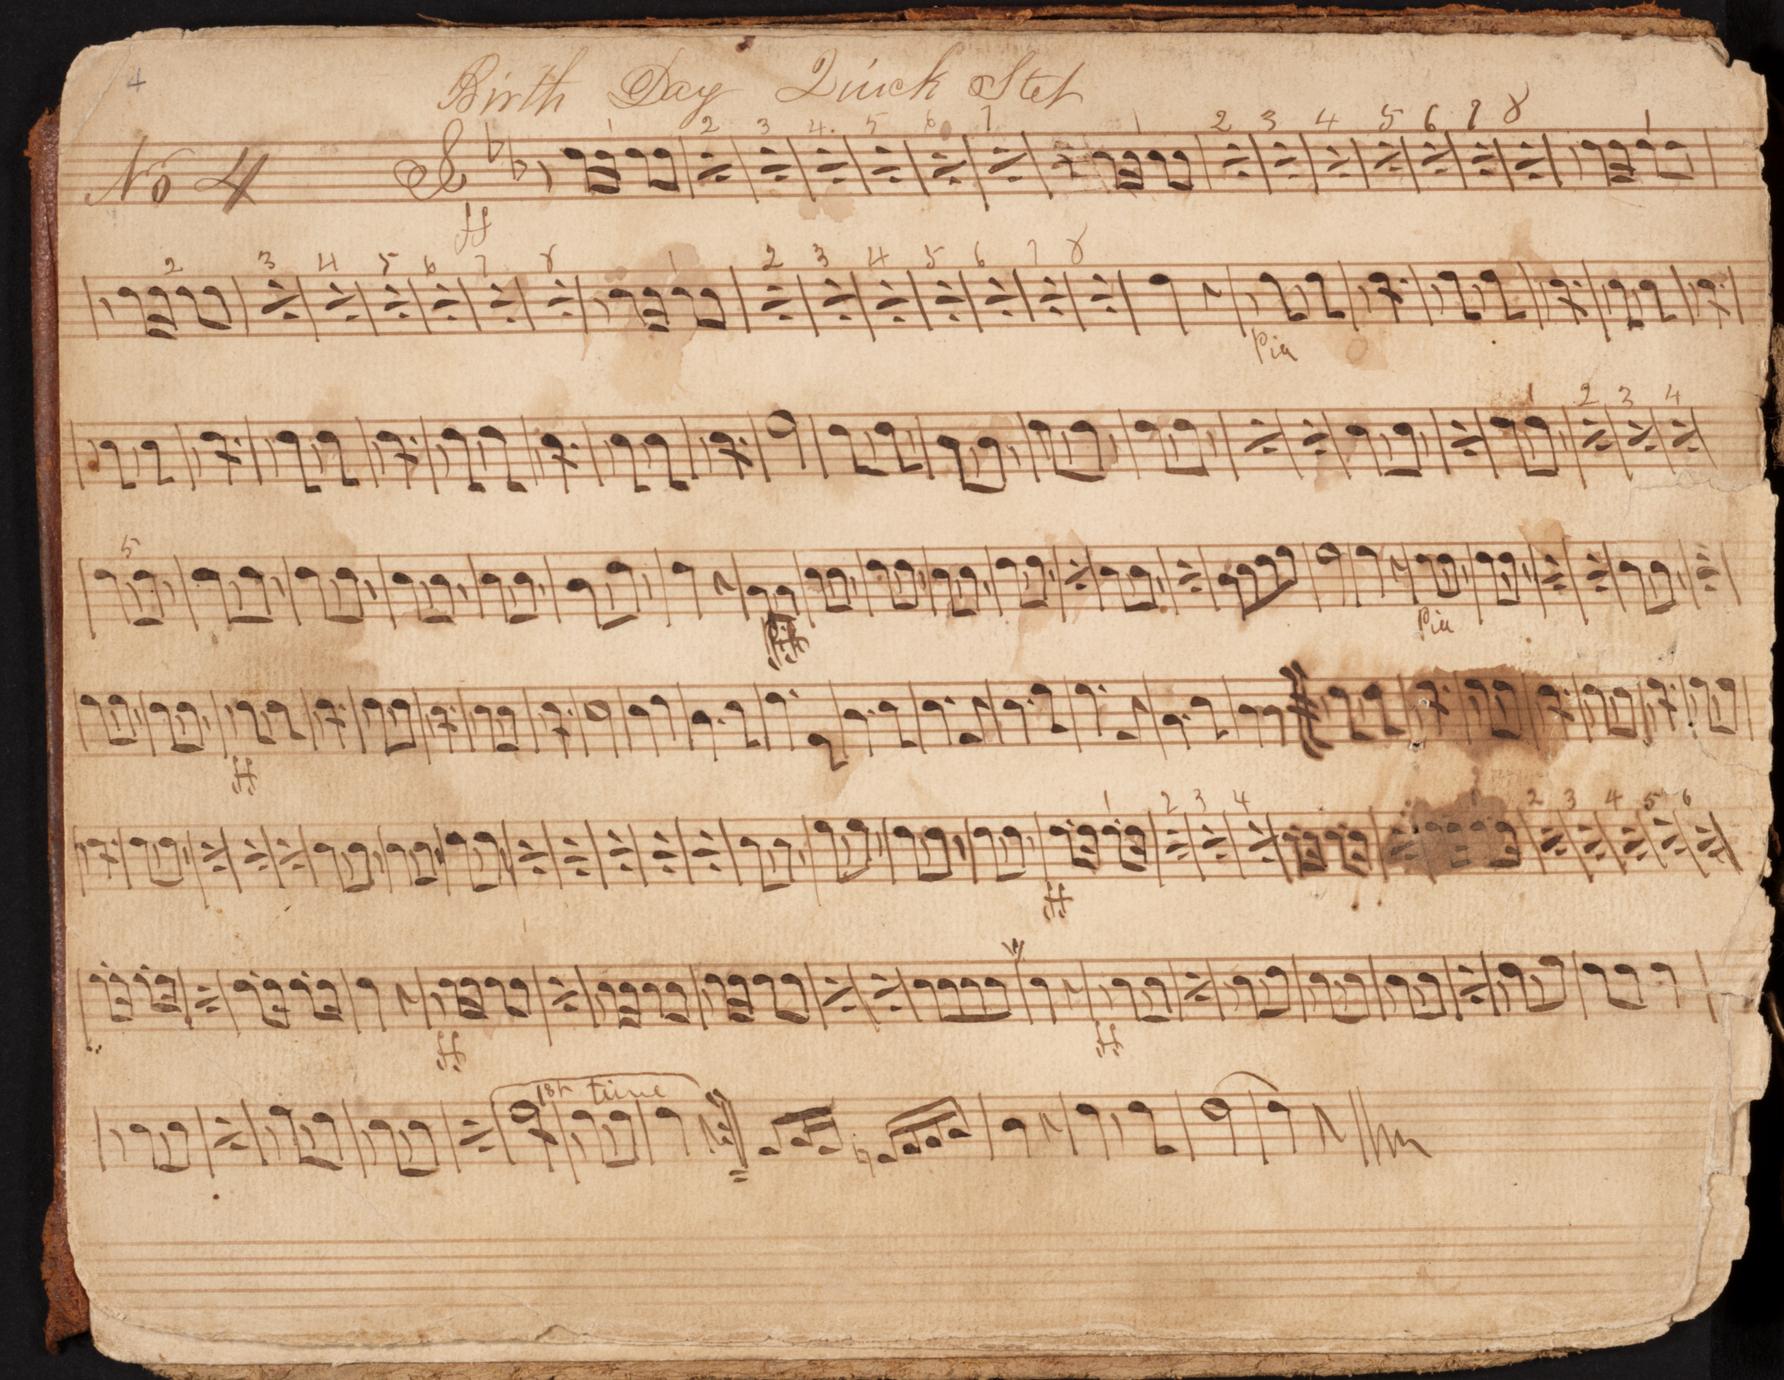 4
Birth Day Quick Step
No 4
1 2 3 4 5 6 7 1 2 3 4 5 6 7 8 1
ff
2 3 4 5 6 7 8 1 2 3 4 5 6 7 8
Pia
1 2 3 4
5
Pia
ff
1 2 3 4 1 2 3 4 5 6
ff
ff ff
1st time